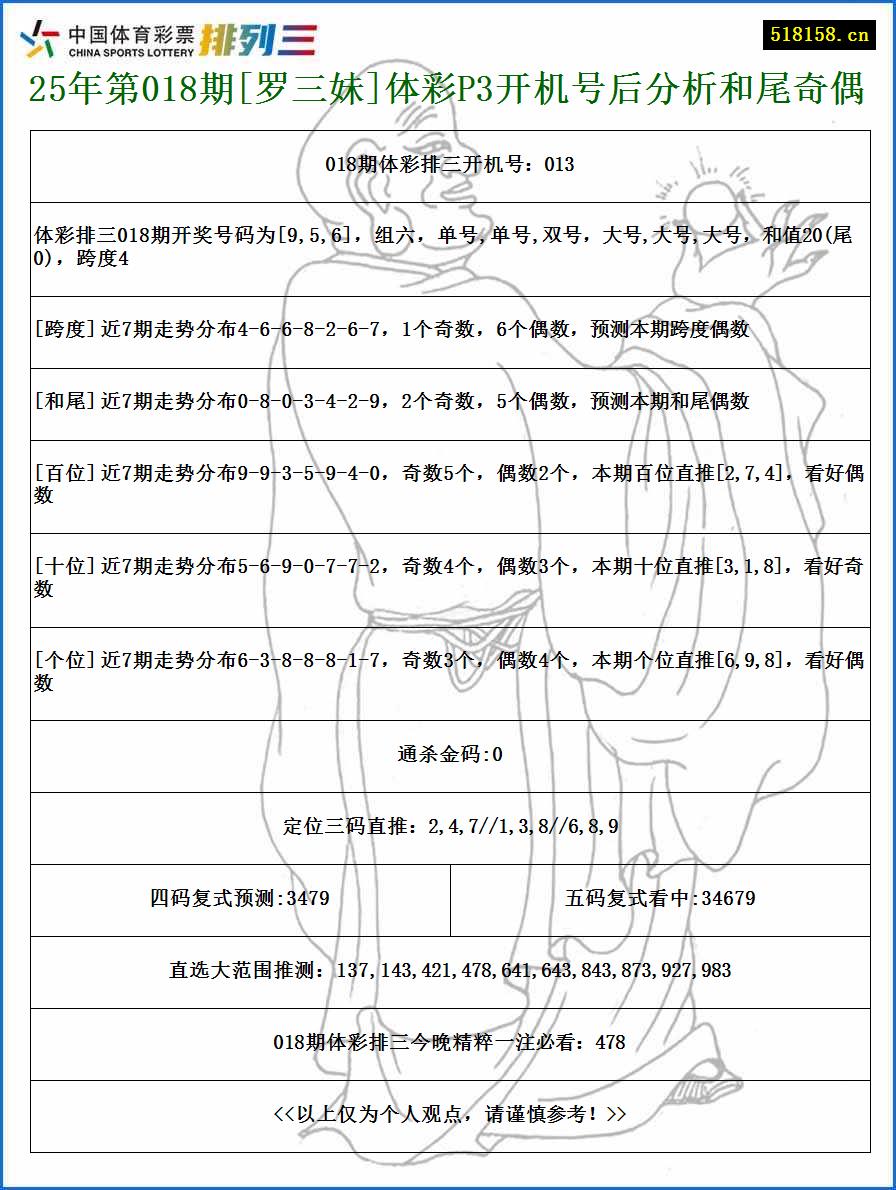 中国体育彩票 排列三
CHINA SPORTS LOTTERY
518158.cn
25年第018期[罗三妹]体彩P3开机号后分析和尾奇偶
018期体彩排三开机号：013
体彩排三018期开奖号码为[9,5,6]，组六，单号,单号,双号，大号,大号,大号，和值20(尾
0)，跨度4
[跨度]近7期走势分布4-6-6-8-2-6-7，1个奇数，6个偶数，预测本期跨度偶数
[和尾]近7期走势分布0-8-0-3-4-2-9，2个奇数，5个偶数，预测本期和尾偶数
[百位]近7期走势分布9-9-3-5-9-4-0，奇数5个，偶数2个，本期百位直推[2,7,4]，看好偶
数
[十位]近7期走势分布5-6-9-0-7-7-2，奇数4个，偶数3个，本期十位直推[3,1,8]，看好奇
数
[个位]近7期走势分布6-3-8-8-8-1-7，奇数3个，偶数4个，本期个位直推[6,9,8]，看好偶
数
通杀金码:0
定位三码直推：2,4,7//1,3,8//6,8,9
四码复式预测:3479
五码复式看中:34679
直选大范围推测：137,143,421,478,641,643,843,873,927,983
018期体彩排三今晚精粹一注必看：478
<<以上仅为个人观点，请谨慎参考！>>